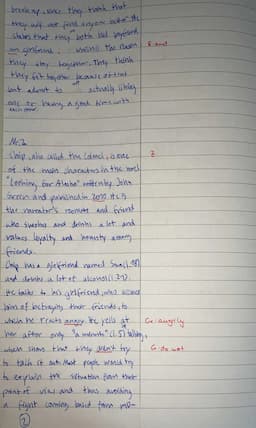 break up, since they think that
they will not find anyone better. He
states that they both had boyfriend
an girlfriend. the reason
they stay together. They think
they fit together because of that
but admit to actually liking
one or having a good time with
each other.
R: and
Nr. 2
Chip, also called the Colonel, is one
of the main characters in the novel
"Looking for Alaska" written by John
Green and published in 2005. He is
the narrator's roommate and friend
who smokes and drinks a lot and
values loyalty and honesty among
friends.
Z
Chip has a girlfriend named Sara
and drinks a lot of alcohol
He talks to his girlfriend, who accuses
him of betraying their friends, to
which he reacts angry. He yells at
Gr: angrily
her after only "a minute" talking,
which shows that they didn't try
G: do not
to talk it out. Most people would try
to explain the situation from their
point of view and thus avoiding
a fight
2